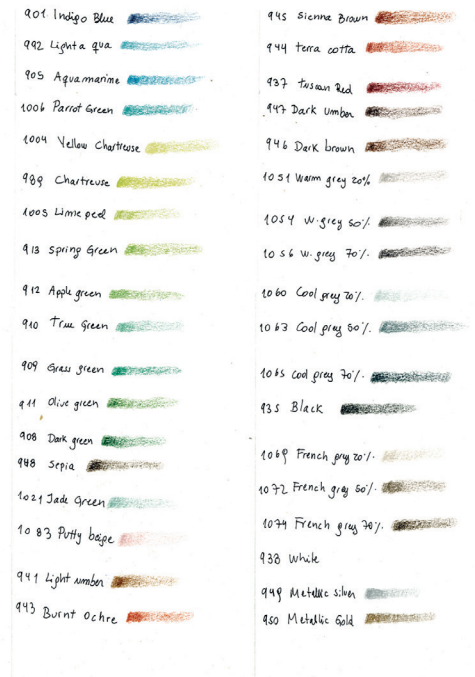 901 Indigo Blue
992 Light a qua
905 Aquamarine
1006 Parrot Green
1004 Yellow Chartreuse
989 Chartreuse
1005 Lime peel
913 Spring Green
912 Apple green
910 True Green
909 Grass green
911 Olive green
908 Dark green
948 Sepia
1021 Jade Green
1083 Putty beige
941 Light umber
943 Burnt Ochre
945 Sienna Brown
944 terra cotta
937 Tuscan Red
947 Dark Umber
946 Dark brown
1051 Warm grey 20%
1054 W. grey 50%
1056 W. grey 70%
1060 Cool grey 20%
1063 Cool grey 50%
1065 Cool grey 70%
935 Black
1069 French grey 20%
1072 French grey 50%
1074 French grey 70%
938 White
949 Metallic Silver
950 Metallic Gold